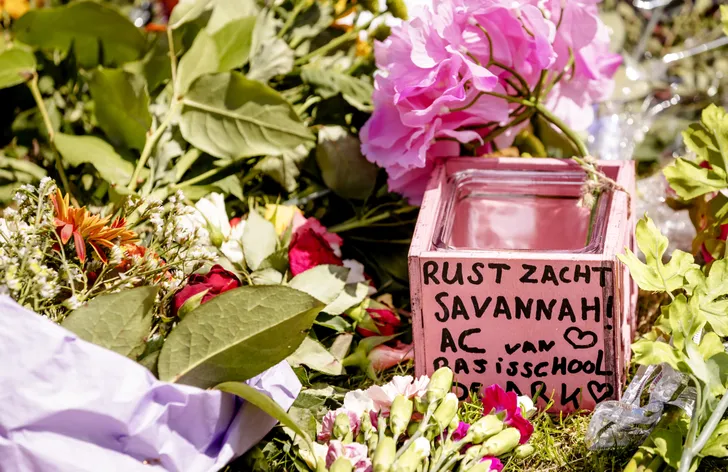 RUST ZACHT
SAVANNAH!
AC van ♡
BASISSCHOOL
DE ARK ♡